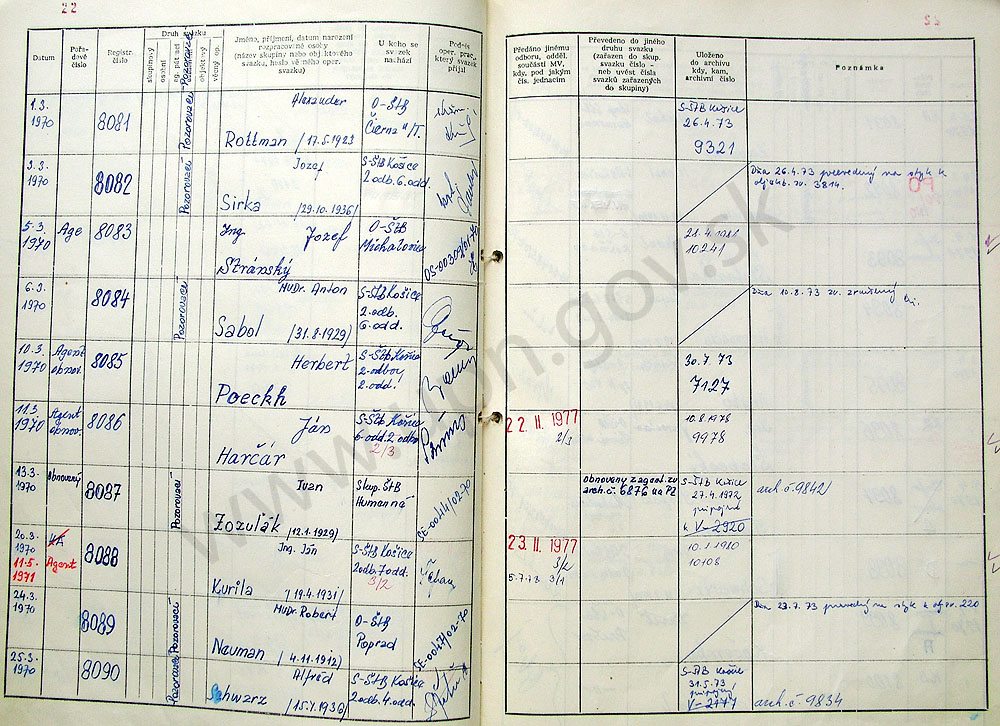 22
Datum
Pořadové číslo
Registr. číslo
Druh svazku
skupinový
Pozorovací
objektový
Jméno, příjmení, datum narození
rozpracované osoby
(název skupiny nebo objektového
svazku, heslo vě ného oper.
svazku)
U koho se
svazek
nachází
Podpis
oper. prac.,
který svazek
přijal
1.3.
1970
8081
Pozorovací
Alexander
Rottman /17.5.1923
O-ŠtB
Čierna n/T.
3.3.
1970
8082
Pozorovací
Jozef
Sirka /29.10.1936/
S-ŠtB Košice
2.odb. 6.odd.
5.3.
1970
Age
8083
Ing. Jozef
Stránský
O-ŠtB
Michalovce
6.3.
1970
8084
Pozorovací
MUDr. Anton
Sabol /31.8.1929/
S-ŠtB Košice
2.odb.
6.odd.
10.3.
1970
Agent
obnov.
8085
Herbert
Poeckh
S-ŠtB Košice
2.odbor
2.odd.
11.3.
1970
Agent
obnov.
8086
Ján
Harčár
S-ŠtB Košice
6 odd. 2.odb.
2/3
13.3.
1970
Obnovený
8087
Pozorovací
Ivan
Zozuľák /12.1.1929/
Skup. ŠtB
Humenné
SE-00414/02-70
20.3.
1970
KA
11.5.
1971
Agent
8088
Ing. Ján
Kurila /19.4.1931/
S-ŠtB Košice
2odb. 7odd.
3/2
24.3.
1970
8089
Pozorovací
MUDr. Robert
Nauman /4.11.1912/
O-ŠtB
Poprad
SE-00417/02-70
25.3.
1970
8090
Alfréd
Schwarz /15.7.1936/
S-ŠtB Košice
2odb. 4.odd.
Předáno jinému
odboru, odděl.
součásti MV,
kdy, pod jakým
čís. jednacím
Převedeno do jiného
druhu svazku
(zařazen do skup.
svazku číslo -
neb uvést čísla
svazků zařazených
do skupiny)
Uloženo
do archivu
kdy, kam,
archivní číslo
Poznámka
S-ŠtB Košice
26.4.73
9321
Dňa 26.4.73 prevedený na styk k
objekt. zv. 3814.
21.4.1981
10241
Dňa 10.8.73 zv. zrušený
30.7.73
7127
22. II. 1977
2/3
10.8.1978
9978
obnovený z agent. zv.
arch.č. 6876 na PZ
S-ŠtB Košice
27.4.1972
pripojené
k V-2920
arch.č. 9842
23. II. 1977
3/2
5.7.78 3/1
10.1.1980
10108
Dňa 23.7.73 prevedený na styk k obj.zv. 220
S-ŠtB Košice
31.5.73
pripojený
V-2777
arch.č. 9834
www.upn.gov.sk